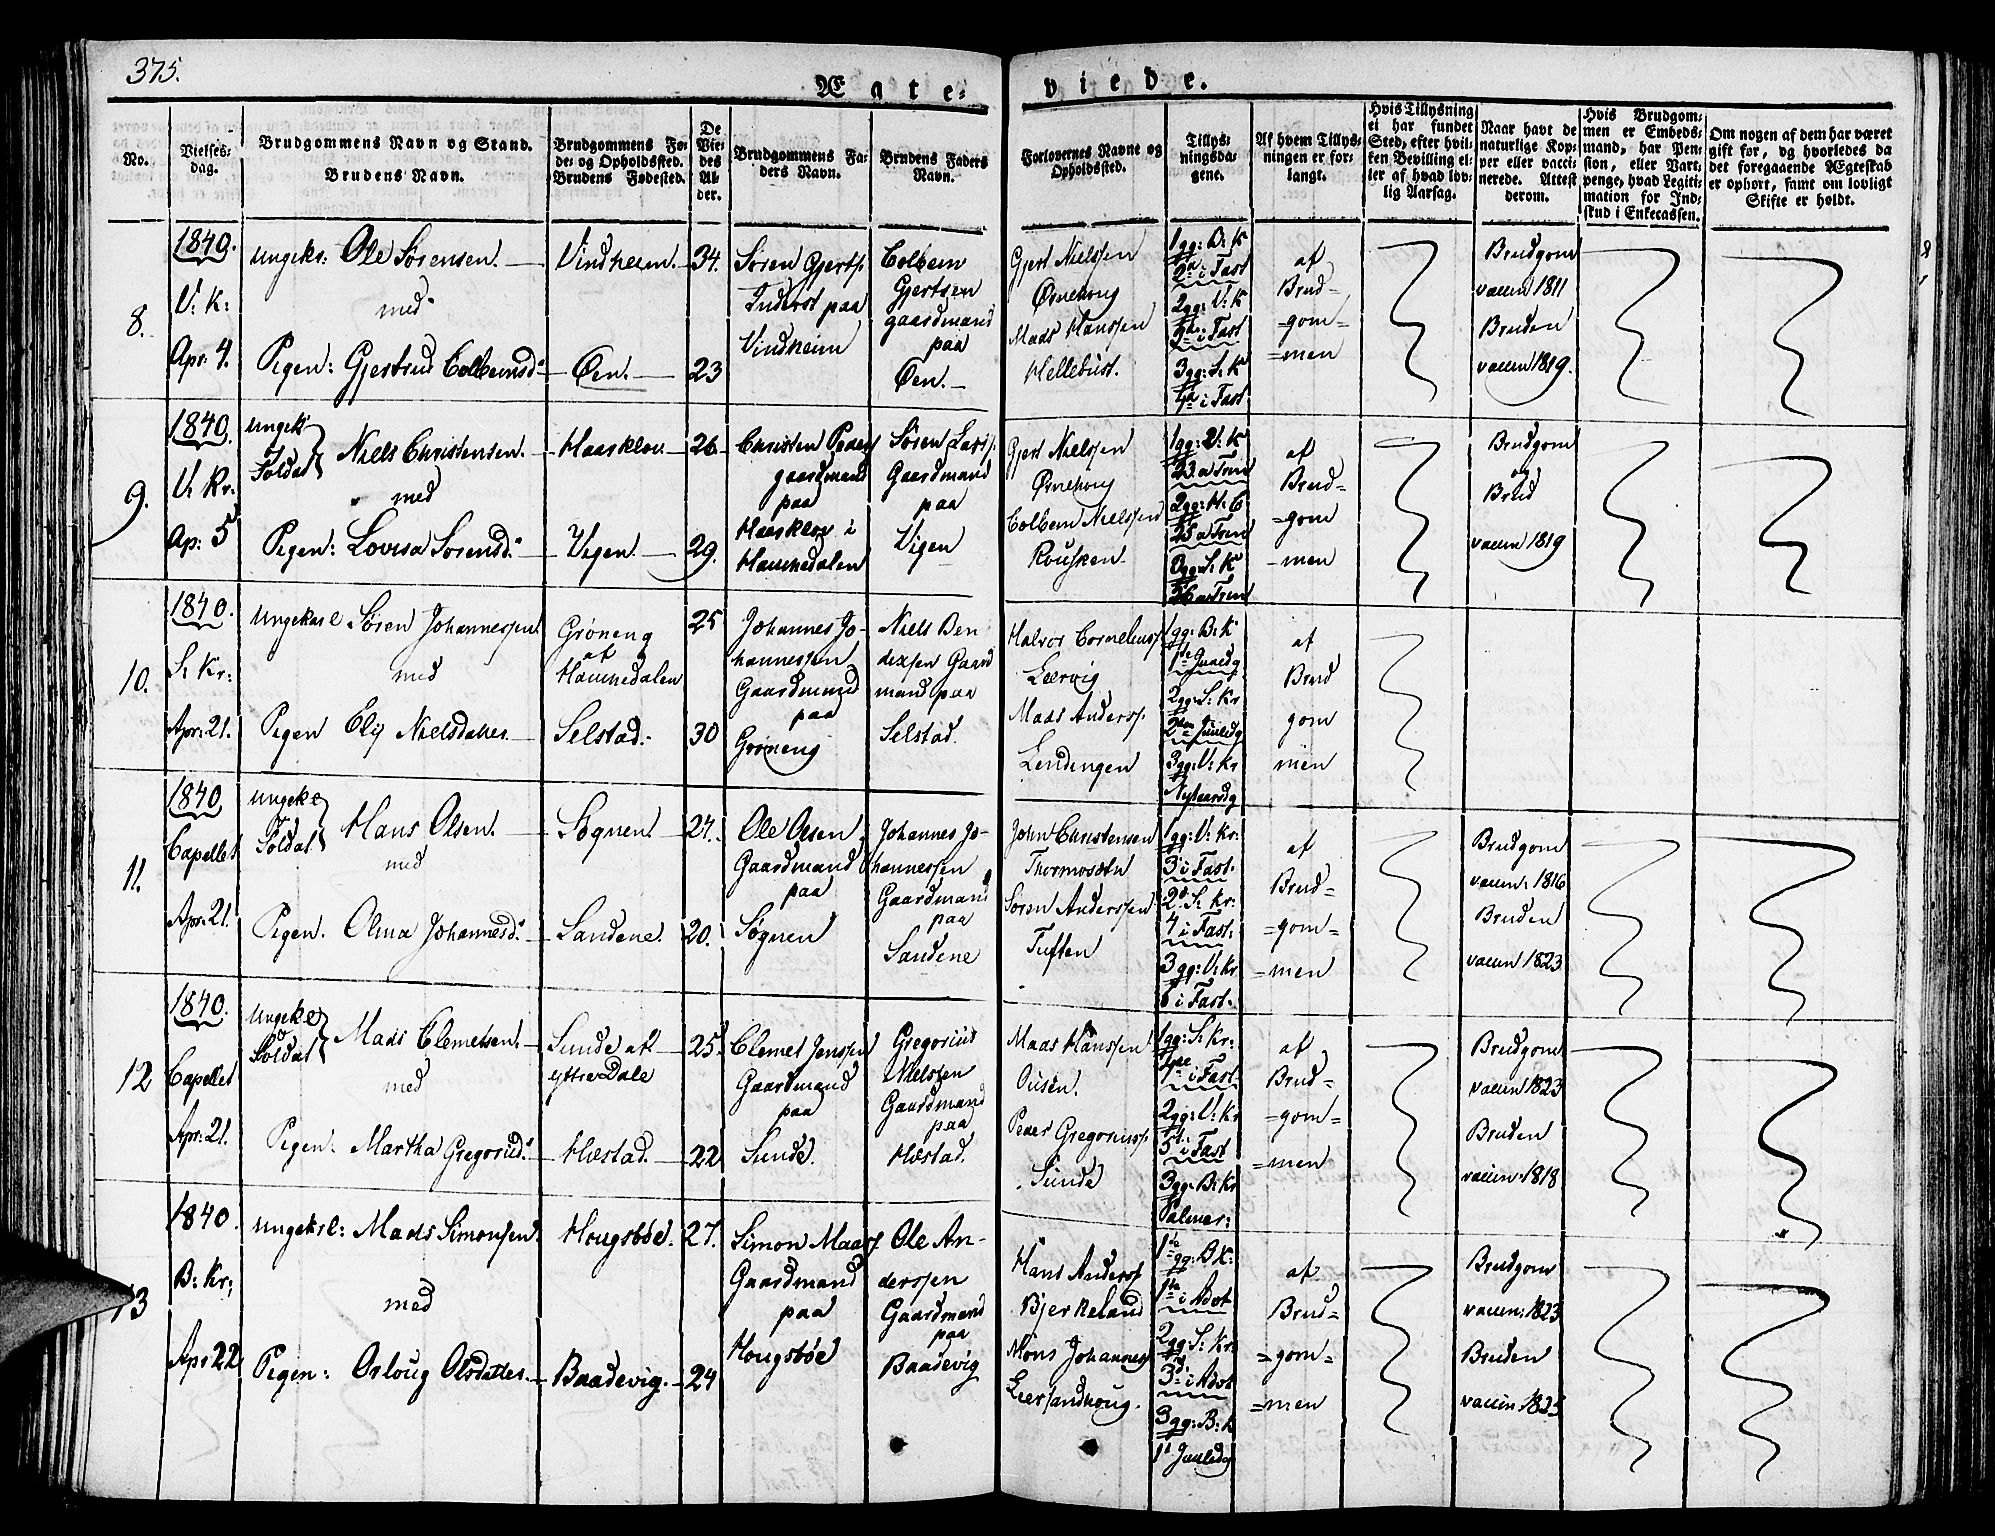 375.
Ægte-
viede.
No.
Vielses-
dag.
Brudgommens Navn og Stand.
Brudens Navn.
Brudgommens Fø-
de- og Opholdssted.
Brudens Fødested.
De
Vie-
des
Al-
der.
Brudgommens Fa-
ders Navn.
Brudens Faders
Navn.
Forlovernes Navne og
Opholdssted.
Tillys-
ningsda-
gene.
Af hvem Tillys-
ningen er for-
langt.
Hvis Tillysning
ei har fundet
Sted, efter hvil-
ken Bevilling el-
ler af hvad lov-
lig Aarsag.
Naar havt de
naturlige Kop-
per eller vacci-
nerede. Attest
derom.
Hvis Brudgom-
men er Embeds-
mand, har Pen-
sion, eller Vart-
penge, hvad Legiti-
mation for Ind-
skud i Enkecassen.
Om nogen af dem har været
gift før, og hvorledes da
det foregaaende Ægteskab
er ophørt, samt om lovligt
Skifte er holdt.
8.
1840.
V: K:
Apr: 4.
Ungkr: Ole Sørensen.
med
Pigen: Gjertrud Colbeinsd:
Vindheim.
Øen.
34.
23
Søren Gjerts:
Inderst paa
Vindheim
Colbein
Gjertsen
gaardmand
paa
Øen.
Gjert Nielssen
Ørnehoug
Mads Hanssen
Hellebust.
1gg: B: K
2den i Fast
2gg: V: K
3die i Fast
3gg: S: K
4de i Fast
af
Brud-
=gom=
=men
Brudgom
vaccn 1811
Bruden
vaccn 1819.
9.
1840.
V: Kr:
Ap: 5
Ungek
og
Soldat
Niels Christensen.
med
Pigen: Lovisa Sørensd:
Haarklou
Vigen.
26
29.
Christen Peders
gaardmand
paa
Haarklou i
Haukedalen
Søren Lars:
Gaardmand
paa
Vigen
Gjert Nielssen
Ørnehoug
Colbein Nielssen
Rousken
1gg: V: K
23 a Trin
2gg: H: C
25 a Trin
3gg: S: K
26 a Trin
af
Brud=
=gom
=men
Brudgom
og
Brud
vaccn 1819
10.
1840.
S: Kr:
Apr: 21.
Ungekarl Søren Johannessen
med
Pigen Ely Nielsdatter
Grøneng
af
Haukedalen
Selstad.
25
30
Johannes Jo-
hannessen
Gaardmand
paa
Grøneng
Niels Ben
dixsen Gaard
mand paa
Selstad.
Halvor Corneliuss
Leervig
Mads Anderss:
Lendingen
1gg: B: K
1ste Juuldg
2gg: S: Kr
2den Juuldg
3gg: V: Kr
Nytaarsdg
af
Brud
gom
men
11.
1840,
Capellet
Apr: 21.
Ungeke
og
Soldat
Hans Olsen.
med
Pigen. Olina Johannesd:
Sognen.
Sandene.
24.
20.
Ole Olsen
Gaardmand
paa
Søgnen
Johannes Jo-
hannessen
Gaardmand
paa
Sandene
John Christensen
Thormosætn
Søren Anderssen
Tuften
1gg: V: Kr:
3 i Fast.
2d: S: Kr:
4 i Fast:
3gg: V: Kr
6 i Fast.
af
Brud=
=gom=
=men
Brudgom
vaccn: 1816
Bruden
vaccn 1823
12
1840.
Capellet
Apr: 21.
Ungeke
og
Soldat
Mads Clemetsen.
med
Pigen: Martha Gregorid:
Sunde af
yttre Dale
Hæstad.
25.
22
Clemet Jenssen
Gaardmand
paa
Sunde.
Gregorius
Nielssen
Gaardmand
paa
Hæstad.
Mads Hanssen
Ousen.
Peder Gregoriuss:
Sunde
1gg: S: Kr:
1ste i Fast
2gg: V: Kr
5te i Fast
3gg: B: Kr
Palmes:
af
Brud=
=gom=
=men
Brudgom
vaccn 1823
Bruden
vaccn: 1818
13
1840.
B: Kr;
Apr 22
Ungekrl: Mads Simonsen.
med
Pigen: Orloug Olsdatter.
Hougsbøe.
Baadevig.
27.
24
Simon Madss
Gaardmand
paa
Hougsbøe
Ole An-
derssen
Gaardmand
paa
Baadevig
Hans Anderss
Bjerkeland
Mons Johannes
Leersandhoug.
1ste gg: B K:
1ste i Advt
2gg: S: Kr:
3die i Advt
3gg: B: K
1st Juuldg
af
Brud=
=gom=
=men
Brudgom
vaccn: 1823
Bruden
vaccin: 1825